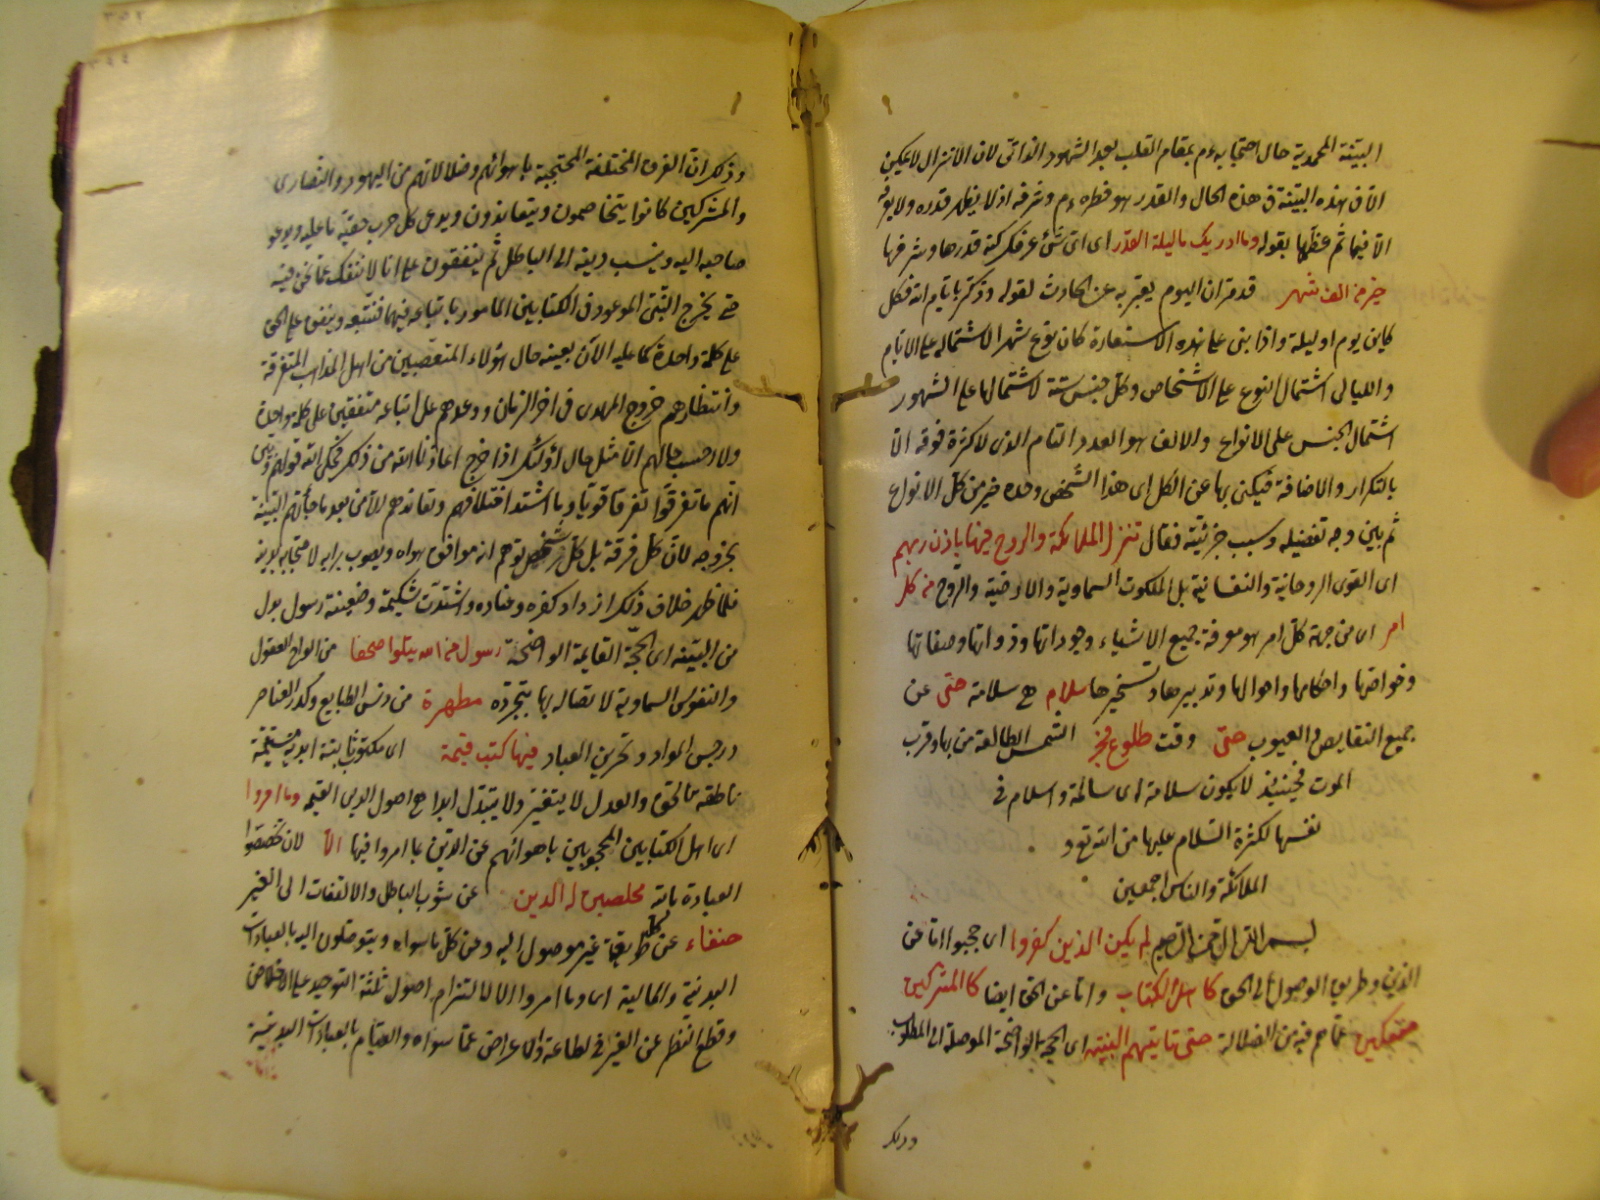 البنية المحمدية حال احتجابه ءم بمقام القلب بعد الشهود الذاتى لان الانزال لا يمكن
الا فى هذه البنية فى هذه الحال والقدر هو خطره ءم وشرفه اذ لا يظهر قدره ولا يعرفه
الا فيها ثم عظمها بقوله وما ادريك ما ليلة القدر اى اى شئ عرفك كنه قدرها وشرفها
خير من الف شهر قد مر ان اليوم يعبر به عن الحادث لقوله وذكرهم بايام الله فكل
كاين يوم او ليلة واذا بنى على هذه الاستعارة كان نوع شهر الاشتماله على الايام
والليالى اشتمال النوع على الاشخاص وكل جنس سنة لاشتمالها على الشهور
اشتمال الجنس على الانواع والالف هو العدد التام الذى لا كثرة فوقه الا
بالتكرار والاضافة فيكنى بها عن الكل اى هذا الشخص وحده خير من كل الانواع
ثم بين وجه تفضيله وسبب خيريته فقال تنزل الملائكة والروح فيها باذن ربهم
اى القوى الروحانية والنفسانية بل الملكوت السماوية والارضية والروح من كل
امر اى من جهة كل امر هو معرفة جميع الاشياء وجوداتها وذواتها وصفاتها
وخواصها واحكامها واحوالها وتدبيرها وتسخيرها سلام هى سلامة حتى عن
جميع النقايص والعيوب حتى وقت طلوع فجر الشمس الطالعة من بها وقرب
الموت فحينئذ لا يكون سلامة اى سالمة واسلام فى
نفسها لكثرة السلام عليها من الله تع و
الملائكة والناس اجمعين
بسم الله الرحمن الرحيم لم يكن الذين كفروا اى حجبوا اما عن
الدين وطريق الوصول الى الحق كاهل الكتاب واما عن الحق ايضا كالمشركين
منفكين عما هم فيه من الضلالة حتى تايتهم البينه اى الحجة الواضحة الموصلة الى المطلوب
وذلك
وذكر ان الفرق المختلفة المحتجبة باهوائهم وضلالاتهم من اليهود والنصارى
والمشركين كانوا يتخاصمون ويتعاندون ويدعى كل حزب حقية ما عليه ويدعو
صاحبه اليه وينسب دينه الى الباطل ثم يتفقون على انا لا ننفك عما نحن فيه
حتى يخرج النبى الموعود فى الكتابين المامور باتباعه فيهما فنتبعه ونتفق على الحق
على كلمة واحدة كما عليه الآن بعينه حال هؤلاء المتعصبين من اهل المذاهب المتفرقة
وانتظارهم خروج المهدى فى اخر الزمان ووعدهم على اتباعه متفقين على كلمة واحدة
ولا احسب حالهم الا مثل حال اولئك اذا خرج اعاذنا الله من ذلك فحكى الله قولهم وبين
انهم ما تفرقوا تفرقا قويا وما اشتد اختلافهم وتعاندهم الا من بعد ما جأتهم البينة
بخروجه لان كل فرقة بل كل شخص توهم انه موافق هواه ويصوب برايه لاحتجابه بدينه
فلما ظهر خلاف ذلك ازداد كفره وعناده واشتدت شكيمة وضغينة رسول بدل
من البينه اى الحجة القايمة الواضحة رسول من الله يتلوا صحفا من الواح العقول
والنفوس السماوية لاتصاله بها بتجرده مطهرة من دنس الطبايع وكدر العناصر
ورجس المواد وتحريف العباد فيها كتب قيمة اى مكتوبة ثابتة ابدية مستقيمة
ناطقة بالحق والعدل لا يتغير ولا يتبدل ابدا هى اصول الدين القيمه وما امروا
اى اهل الكتابين المحجوبين باهوائهم عن الدين بما امروا فيها الا لان يخصصوا
العبادة بالله مخلصين له الدين عن شوب الباطل والالتفات الى الغير
حنفاء عن كل طريقة غير موصول اليه وعن كل ما سواه ويتوصلون اليه بالعبادات
البدنية والمالية اى وما امروا الا لالتزام اصول ثلثة التوحيد على الاخلاص
وقطع النظر عن الغير فى لطاعة والاعراض عما سواه والقيام بالعبادات البدنية